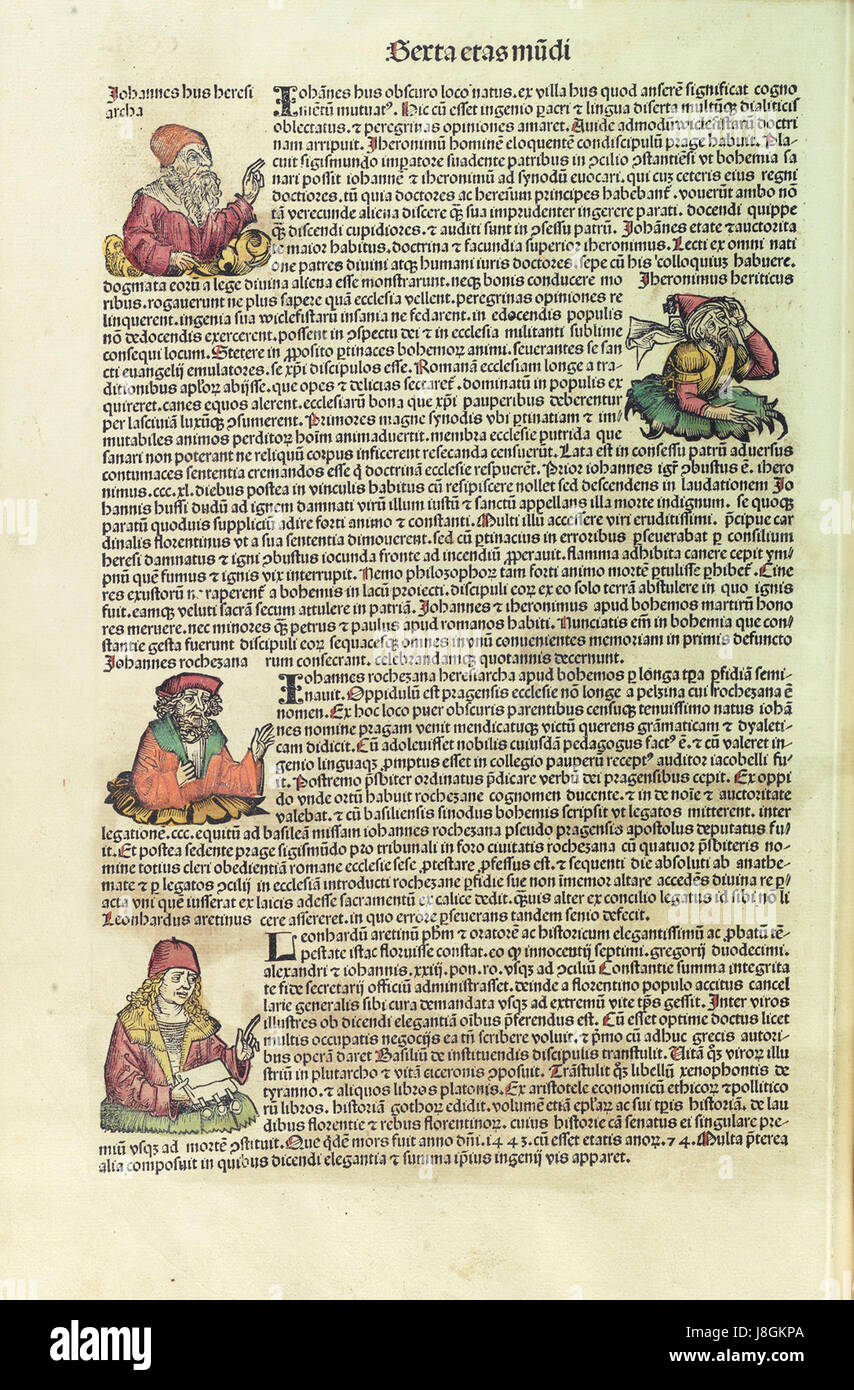 Sexta etas mũdi
Johannes hus heresi
archa
Iohãnes hus obscuro loco natus. ex villa hus quod anserẽ significat cogno
mẽtũ mutuatꝰ. Hic cũ esset ingenio ꝑacri ⁊ lingua diserta multũqꝫ dialiticis
oblectatus. ⁊ peregrinas opiniones amaret. Auide admodũ wiclefistarũ doctri
nam arripuit. Jheronimũ hominẽ eloquentẽ condiscipulũ prage habuit. Pla
cuit sigismundo imꝑatore suadente patribus in ꝯcilio ꝯstantiẽsi vt bohemia sa
nari possit iohannẽ ⁊ iheronimũ ad synodũ euocari. qui cũ ceteris eius regni
doctiores. tũ quia doctores ac hereũm principes habebanť. vouerũt ambo nõ
tã verecunde aliena discere qꝫ̃ sua imprudenter ingerere parati. docendi quippe
qꝫ̃ discendi cupidiores. ⁊ auditi sunt in ꝯsessu patrũ. Johãnes etate ⁊ auctorita
te maior habitus. doctrina ⁊ facundia superior iheronimus. Lecti ex omni nati
one patres diuini atqꝫ humani iuris doctores. sepe cũ his colloquiũ habuere.
dogmata eorũ a lege diuina aliena esse monstrarunt. neqꝫ bonis conducere mo
Jheronimus heriticus
ribus. rogauerunt ne plus sapere quã ecclesia vellent. peregrinas opiniones re
linquerent. ingenia sua wiclefistarũ insania ne fedarent. in edocendis populis
nõ dedocendis exercerent. possent in ꝯspectu dei ⁊ in ecclesia militanti sublime
consequi locum. Stetere in ꝓposito ꝑtinaces bohemoꝝ animi. seuerantes se san
cti euangelij emulatores. se xp̃i discipulos esse. Romanã ecclesiam longe a tra
ditionibus apl̃oꝝ abijsse. que opes ⁊ delicias sectareť. dominatũ in populis ex
quireret. canes equos alerent. ecclesiarũ bona que xp̃i pauperibus deberentur
per lasciuiam luxũqꝫ ꝯsumerent. Primores magne synodis vbi ꝑtinatiam ⁊ im
mutabiles animos perditoꝝ hoĩm animaduertit. membra ecclesie putrida que
sanari non poterant ne reliquũ corpus inficerent resecanda censuerũt. Lata est in consessu patrũ aduersus
contumaces sententia cremandos esse q̃ doctrinã ecclesie respuerẽt. Prior iohannes igť ꝯbustus ẽ. ihero
nimus. ccc. xl. diebus postea in vinculis habitus cũ resipiscere nollet sed descendens in laudationem Jo
hannis hussi dudũ ad ignem damnati virũ illum iustũ ⁊ sanctũ appellans illa morte indignum. se quoqꝫ
paratũ quoduis suppliciũ adire forti animo ⁊ constanti. Multi illũ accessere viri eruditissimi. p̃cipue car
dinalis florentinus vt a sua sententia dimouerent. sed cũ ꝑtinacius in erroribus ꝑseuerabat ꝑ consilium
heresi damnatus ⁊ igni ꝯbustus iocunda fronte ad incendiũ ꝓperauit. flamma adhibita canere cepit ym
pnũ quẽ fumus ⁊ ignis vix interrupit. Nemo philosophoꝝ tam forti animo mortẽ ꝑtulisse ꝑhibeť. Cine
res exustorũ raperenť a bohemis in lacũ proiecti. discipuli eoꝝ ex eo solo terrã abstulere in quo ignis
fuit. eamqꝫ veluti sacrã secum attulere in patriã. Johannes ⁊ iheronimus apud bohemos martirũ hono
res meruere. nec minores qꝫ̃ petrus ⁊ paulus apud romanos habiti. Nunciatis eĩm in bohemia que con
stantie gesta fuerunt discipuli eoꝝ sequacesqꝫ omnes in vnũ conuenientes memoriam in primis defuncto
rum consecrant. celebrandamqꝫ quotannis decernunt.
Johannes rochezana
Iohannes rochezana heresiarcha apud bohemos ꝑ longa tꝑa ꝑfidiã semi
nauit. Oppidulũ est pragensis ecclesie nõ longe a pelzina cui rochezana ẽ
nomen. Ex hoc loco puer obscuris parentibus censuqꝫ tenuissimo natus iohã
nes nomine pragam venit mendicatuqꝫ victũ querens grãmaticam ⁊ dyaleti
cam didicit. Cũ adoleuisset nobilis cuiusdã pedagogus factꝰ ẽ. ⁊ cũ valeret in
genio linguaqꝫ ꝓmptus esset in collegio pauperũ receptꝰ auditor iacobelli fu
it. Postremo p̃sbiter ordinatus p̃dicare verbũ dei pragensibus cepit. Ex oppi
do vnde ortũ habuit rochezane cognomen ducente. ⁊ in de noĩe ⁊ auctoritate
valebat. ⁊ cũ basiliensis sinodus bohemis scripsit vt legatos mitterent. inter
legatione. ccc. equitũ ad basileã missam iohannes rochezana pseudo pragensis apostolus deputatus fu
it. Et postea sedente prage sigismũdo pro tribunali in foro ciuitatis rochezana cũ quatuor p̃sbiteris no
mine totius cleri obedientiã romane ecclesie sese ꝓtestare ꝓfessus est. ⁊ sequenti die absoluti ab anathe
mate ⁊ ꝑ legatos ꝯcilij in ecclesiã introducti rochezane ꝑfidie sue non ĩmemor altare accedẽs diuina re ꝑ
acta vni que iusserat ex laicis adesse sacramentũ ex calice dedit. qꝫuis alter ex concilio legatus id sibi nõ li
cere assereret. in quo errore ꝑseuerans tandem senio defecit.
Leonhardus aretinus
Leonhardũ aretinũ ph̃m ⁊ oratorẽ ac historicum elegantissimũ ac ꝓbatũ tẽ
pestate istac floruisse constat. eo qꝫ innocentij septimi. gregorij duodecimi.
alexandri ⁊ iohannis. xxiij. pon. ro. vsqꝫ ad ꝯciliũ Constantie summa integrita
te fide secretarij officiũ administrasset. deinde a florentino populo accitus cancel
larie generalis sibi cura demandata vsqꝫ ad extremũ vite tꝑs gessit. Inter viros
illustres ob dicendi elegantiã oĩbus p̃ferendus est. Cũ esset optime doctus licet
multis occupatis negocijs ea tñ scribere voluit. ⁊ p̃mo cũ adhuc grecis autori
bus operã daret Basiliũ de instituendis discipulis transtulit. Uitã qꝫ viroꝝ illu
striũ in plutarcho ⁊ vitã ciceronis ꝯposuit. Trãstulit qꝫ libellũ xenophontis de
tyranno. ⁊ aliquos libros platonis. Ex aristotele economicũ ethicoꝝ ⁊ politico
rũ libros. historiã gothoꝝ edidit. volumẽ etiã ep̃laꝝ ac sui tꝑis historiã. de lau
dibus florentie ⁊ rebus florentinoꝝ. cuius historie cã senatus ei singulare pre
miũ vsqꝫ ad mortẽ ꝯstituit. Que qͥdẽ mors fuit anno dñi. 1443. cũ esset etatis anoꝝ. 74. Multa p̃terea
alia composuit in quibus dicendi elegantia ⁊ summa ip̃ius ingenij vis apparet.
alamy
alamy stock photo
J8GKPA
www.alamy.com